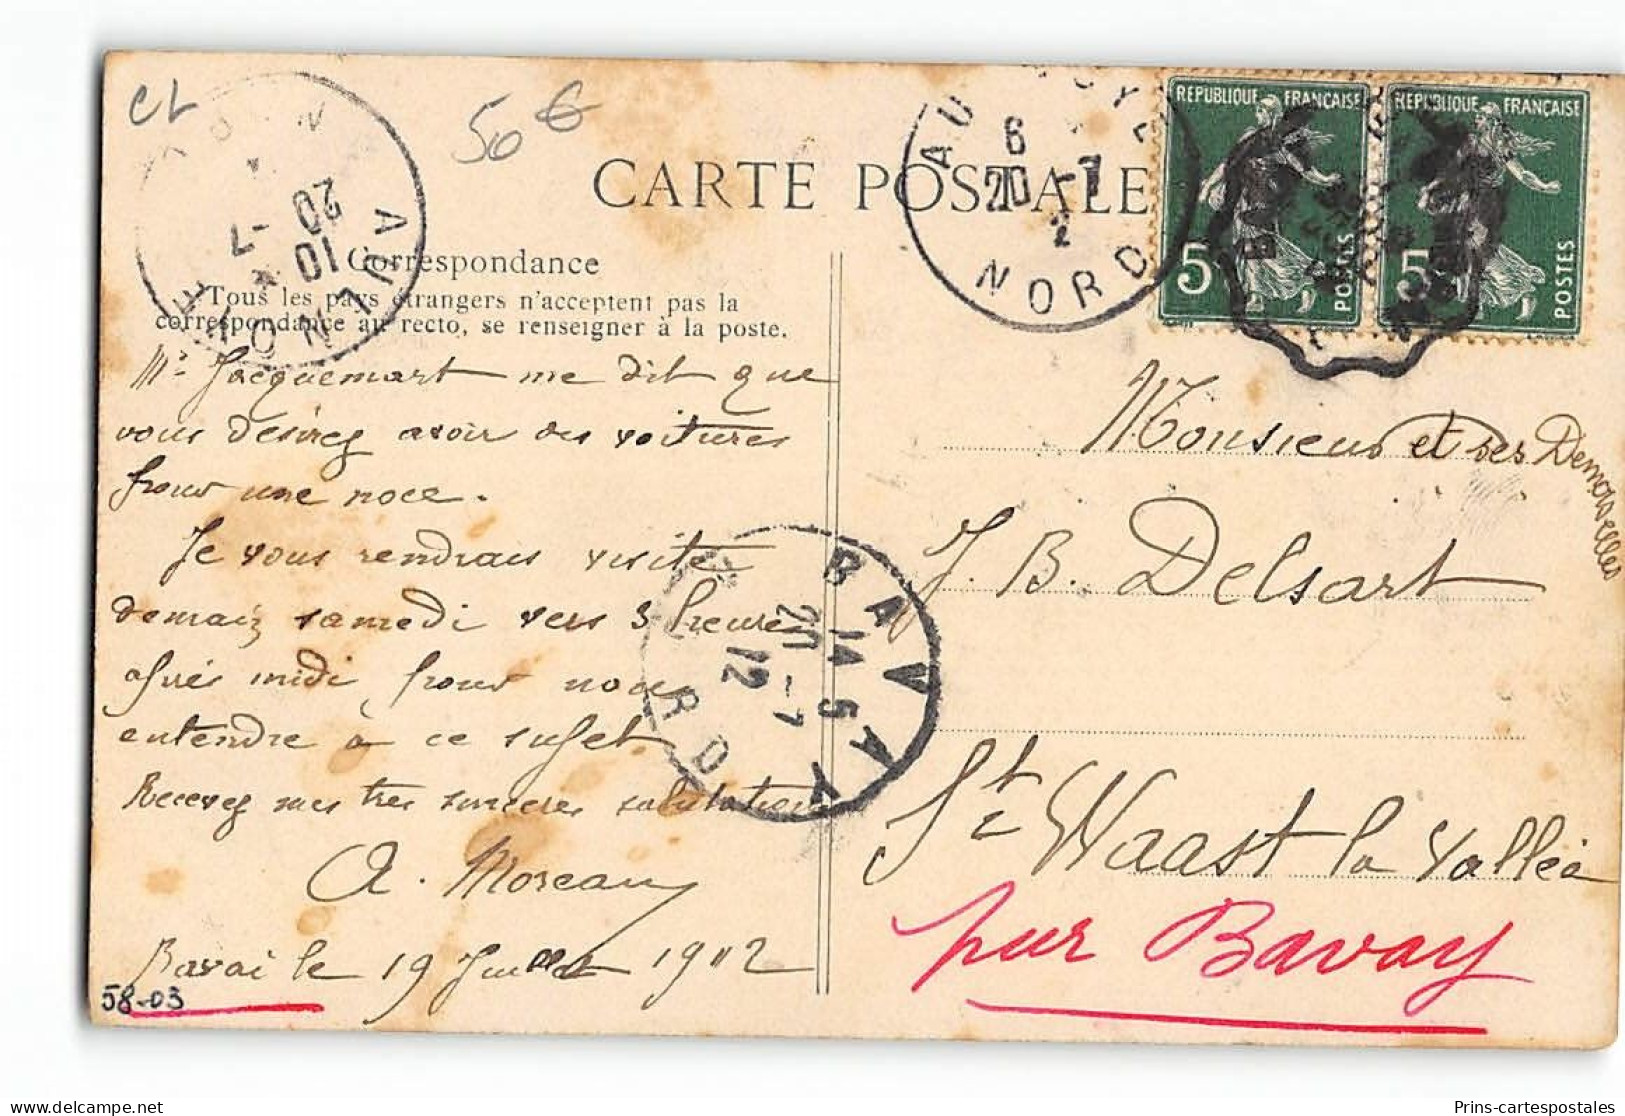 CL
50 €
CARTE POSTALE
Correspondance
Tous les pays étrangers n'acceptent pas la
correspondance au recto, se renseigner à la poste.
Mr Jacquemart me dit que
vous désirez avoir des voitures
pour une noce.
Je vous rendrais visite
demain samedi vers 3 heures
après midi pour nous
entendre à ce sujet
Recevez mes très sincères salutations
A. Moreau
Bavai le 19 Juillet 1912
58-03
AULNOYE
NORD
10
20 -7
AULNOYE
6
20 -7
12
NORD
BAVAY
14 5
20 -7
12
NORD
REPUBLIQUE FRANÇAISE
5
POSTES
REPUBLIQUE FRANÇAISE
5
POSTES
Monsieur et ses Demoiselles
J. B. Delsart
St Waast la Vallée
par Bavay
Prins-cartespostales